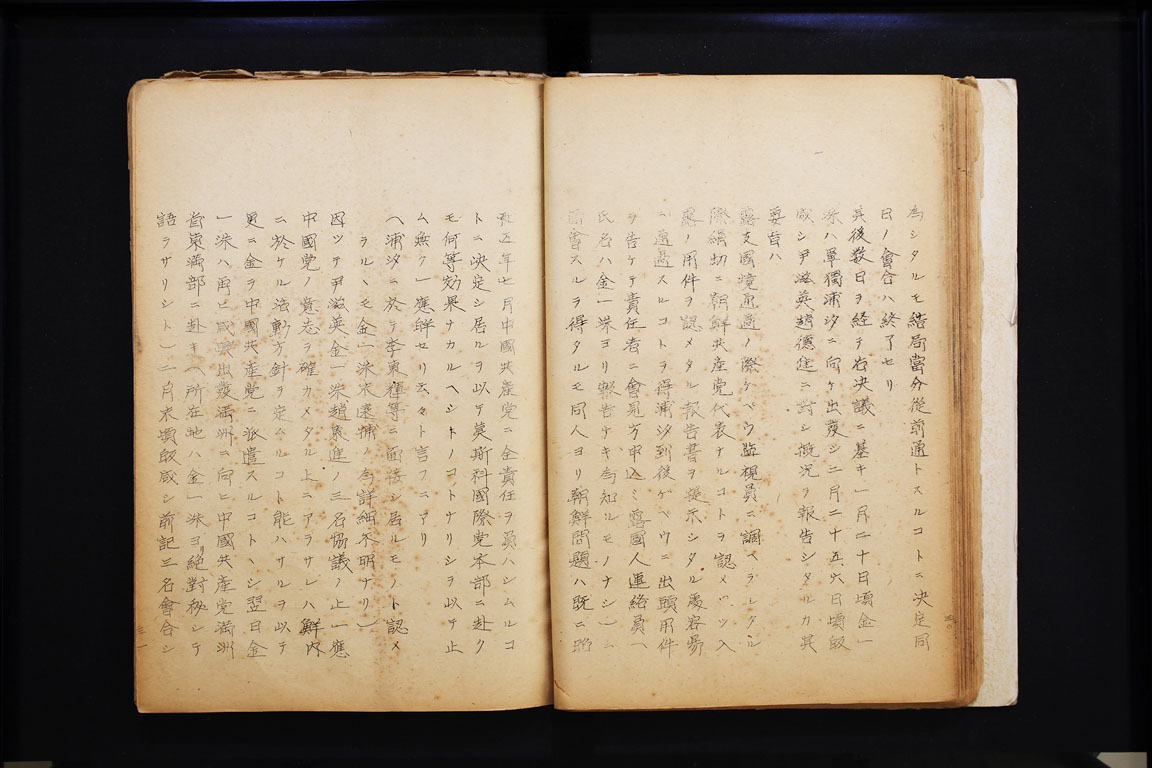 為シタルモ結局當分從前通トスルコトニ決定同
日ノ會合ハ終了セリ
其後數日ヲ経テ右決議ニ基キ一月二十日頃金一
洙ハ單獨浦汐ニ向ケ出發シ二月二十五六日頃皈
咸シ尹滋英趙德進ニ對シ概況ヲ報告シタルカ其
要旨ハ
露支國境通過ノ際ゲペウ監視員ニ調ベラレタル
際綢切ニ朝鮮共産党代表ナルコトヲ認メツツ入
露ノ用件ヲ認メタル報告書ヲ提示シタル處容易
ニ通過スルコトヲ得浦汐到後ゲペウニ出頭用件
ヲ告ケテ責任者ニ會見方申込ミ露國人連絡員(
氏名ハ金一洙ヨリ報告ナキ為知ルモノナシ)ニ
面會スルヲ得タルモ同人ヨリ朝鮮問題ハ既ニ昭
和五年七月中國共産党ニ全責任ヲ負ハシムルコ
トニ決定シ居ルヲ以テ莫斯科國際党本部ニ赴ク
モ何等効果ナカルヘシトノコトナリシヲ以テ止
ム無ク一應辞セリ云々ト言フニアリ
(浦汐ニ於テ李東輝等ニ面接シ居ルモノト認メ
ラルヽモ金一洙未逮捕ノ為詳細不明ナリ)
因ツテ尹滋英金一洙趙德進ノ三名協議ノ上一應
中國党ノ意志ヲ確カメタル上ニアラサレハ鮮内
ニ於ケル活動方針ヲ定ムルコト能ハサルヲ以テ
更ニ金ヲ中國共産党ニ派遣スルコトヽシ翌日金
一洙ハ再ヒ咸興出發満洲ニ向ヒ中國共産党満洲
省東満部ニ赴キ(所在地ハ金一洙ヨリ絶對秘シテ
語ラザリシト)二月末頃皈咸シ前記三名會合シ